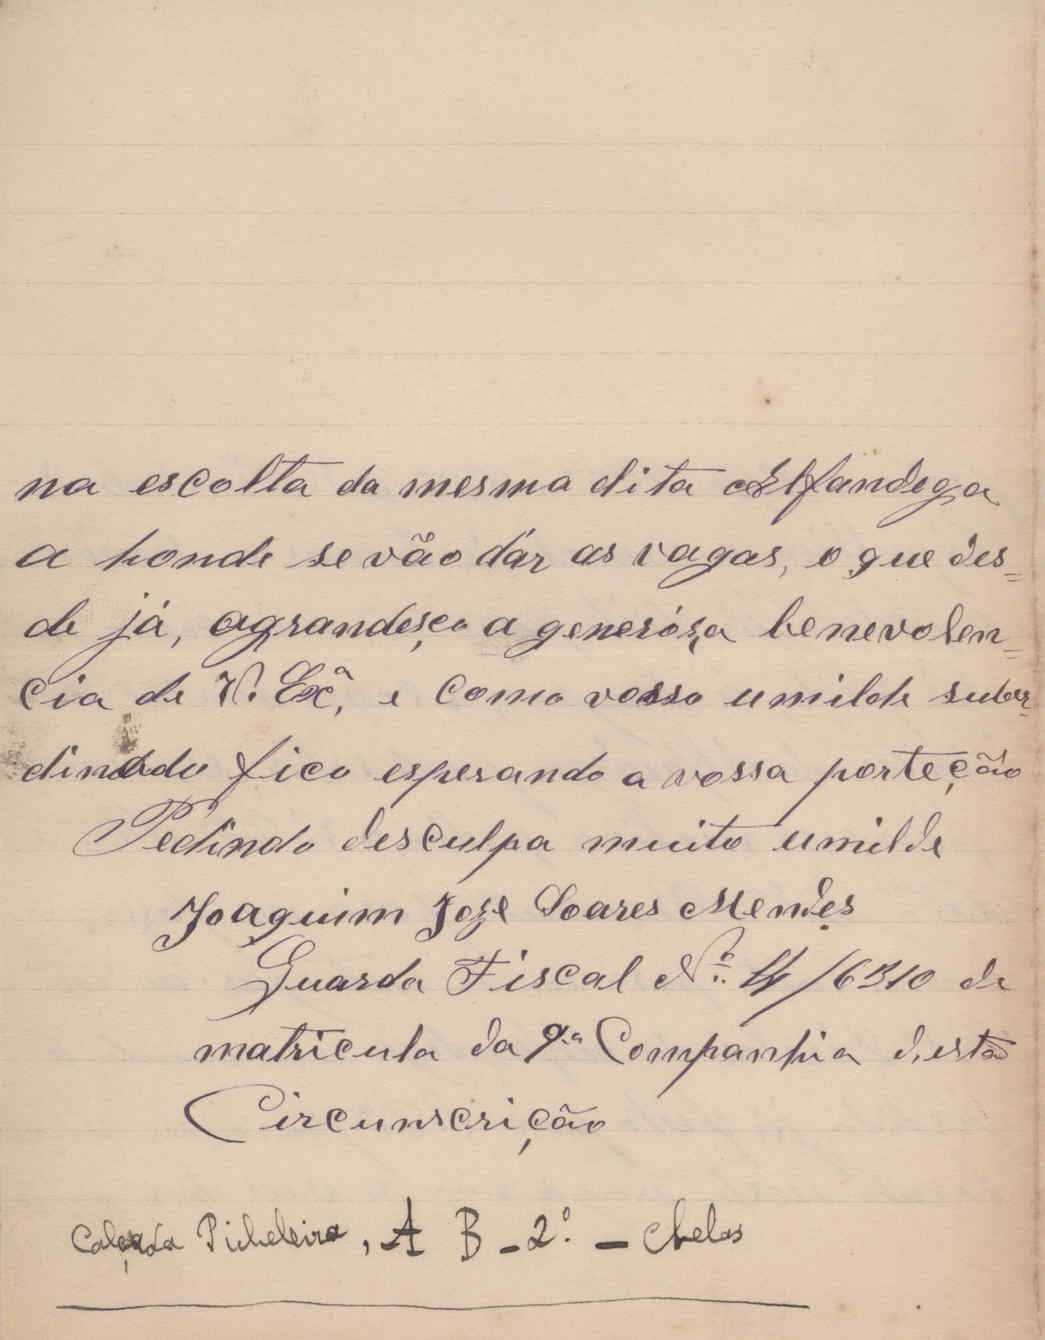 na escolta da mesma dita Alfandega
a honde se vão dár as vagas, o que des=
de já, agrandesço a generóza benevolen=
cia de V. Exª, e como vosso umilde subor=
dinado fico esperando a vossa porteção
Pedindo desculpa muito umilde
Joaquim Jozé Soares Mendes
Guarda Fiscal Nº 4/6310 de
matricula da 9ª Companhia desta
Circunscrição
Calçada Picheleira, A B - 2º. - Chelas